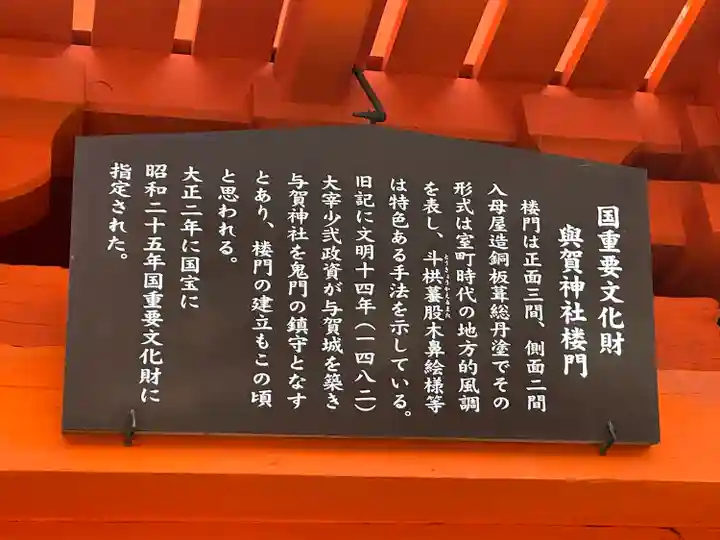 国重要文化財
與賀神社楼門
楼門は正面三間、側面二間
入母屋造銅板葺総丹塗でその
形式は室町時代の地方的風調
を表し、斗栱蟇股木鼻絵様等
は特色ある手法を示している。
旧記に文明十四年(一四八二)
大宰少弐政資が与賀城を築き
与賀神社を鬼門の鎮守となす
とあり、楼門の建立もこの頃
と思われる。
大正二年に国宝に
昭和二十五年国重要文化財に
指定された。